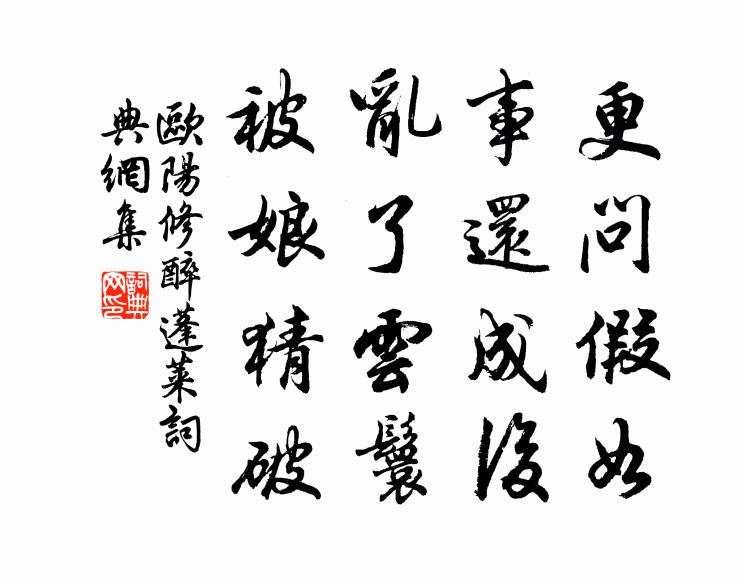 更問假如
事還成後
亂了雲鬟
被娘猜破
歐陽修醉蓬萊詞
典網集
詞典
网印